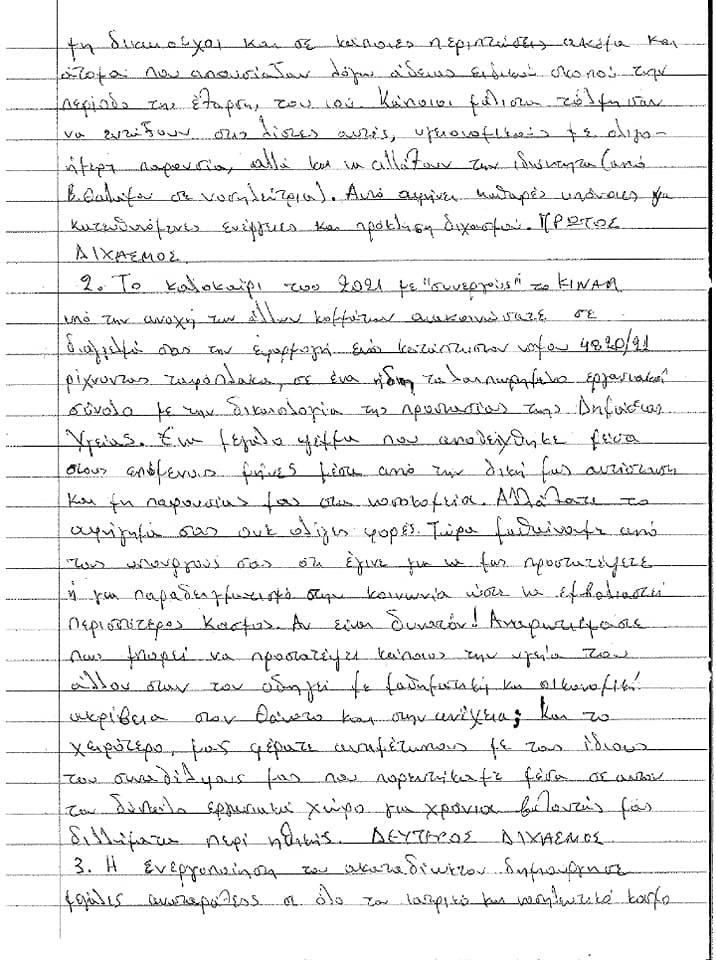 μη δικαιούχοι και σε κάποιες περιπτώσεις ακόμα και
άτομα που απουσίαζαν λόγω άδειας ειδικού σκοπού την
περίοδο της έξαρσης του ιού. Κάποιοι μάλιστα τόλμησαν
να εντάξουν στις λίστες αυτές, υγειονομικούς με ολιγο-
ήμερη παρουσία, αλλά και να αλλάξουν την ιδιότητα (από
θαλάμου σε νοσηλεύτρια). Αυτό αφήνει καθαρές υπόνοιες για
κατευθυνόμενες ενέργειες και πρόκληση διχασμού. ΠΡΩΤΟΣ
ΔΙΧΑΣΜΟΣ
2. Το καλοκαίρι του 2021 με "συνεργούς" το ΚΙΝΑΛ
υπό την ανοχή των άλλων κομμάτων ανακοινώσατε σε
διάγγελμά σας την εφαρμογή ενός κατάπτυστου νόμου 4820/21
ρίχνοντας ταφόπλακα, σε ένα ήδη ταλαιπωρημένο εργασιακό
σύνολο με την δικαιολογία της προστασίας της Δημόσιας
Υγείας. Ένα μεγάλο ψέμμα που αποδείχθηκε μέσα
στους επόμενους μήνες μέσα από την δική μας αντίσταση
και μη παρουσίας μας στα νοσοκομεία. Αλλάζατε το
αφήγημά σας ουκ ολίγες φορές. Τώρα μαθαίναμε από
τους υπουργούς σας ότι έγινε για να μας προστατέψετε
ή για παραδειγματισμό στην κοινωνία ώστε να εμβολιαστεί
περισσότερος κόσμος. Αν είναι δυνατόν! Αναρωτιόμαστε
πως μπορεί να προστατέψει κάποιος την υγεία του
άλλου όταν τον οδηγεί με μαθηματική και οικονομική
ακρίβεια στον θάνατο και στην ανέχεια; Και το
χειρότερο, μας φέρατε αντιμέτωπους με τους ίδιους
τους συναδέλφους μας που πορευτήκαμε μέσα σε αυτόν
τον δύσκολο εργασιακό χώρο για χρόνια βάζοντάς μας
διλλήματα περί ηθικής. ΔΕΥΤΕΡΟΣ ΔΙΧΑΣΜΟΣ
3. Η ενεργοποίηση του ακαταδίωκτου δημιούργησε
μεγάλες αναταράξεις σε όλο τον ιατρικό και νοσηλευτικό κόσμο